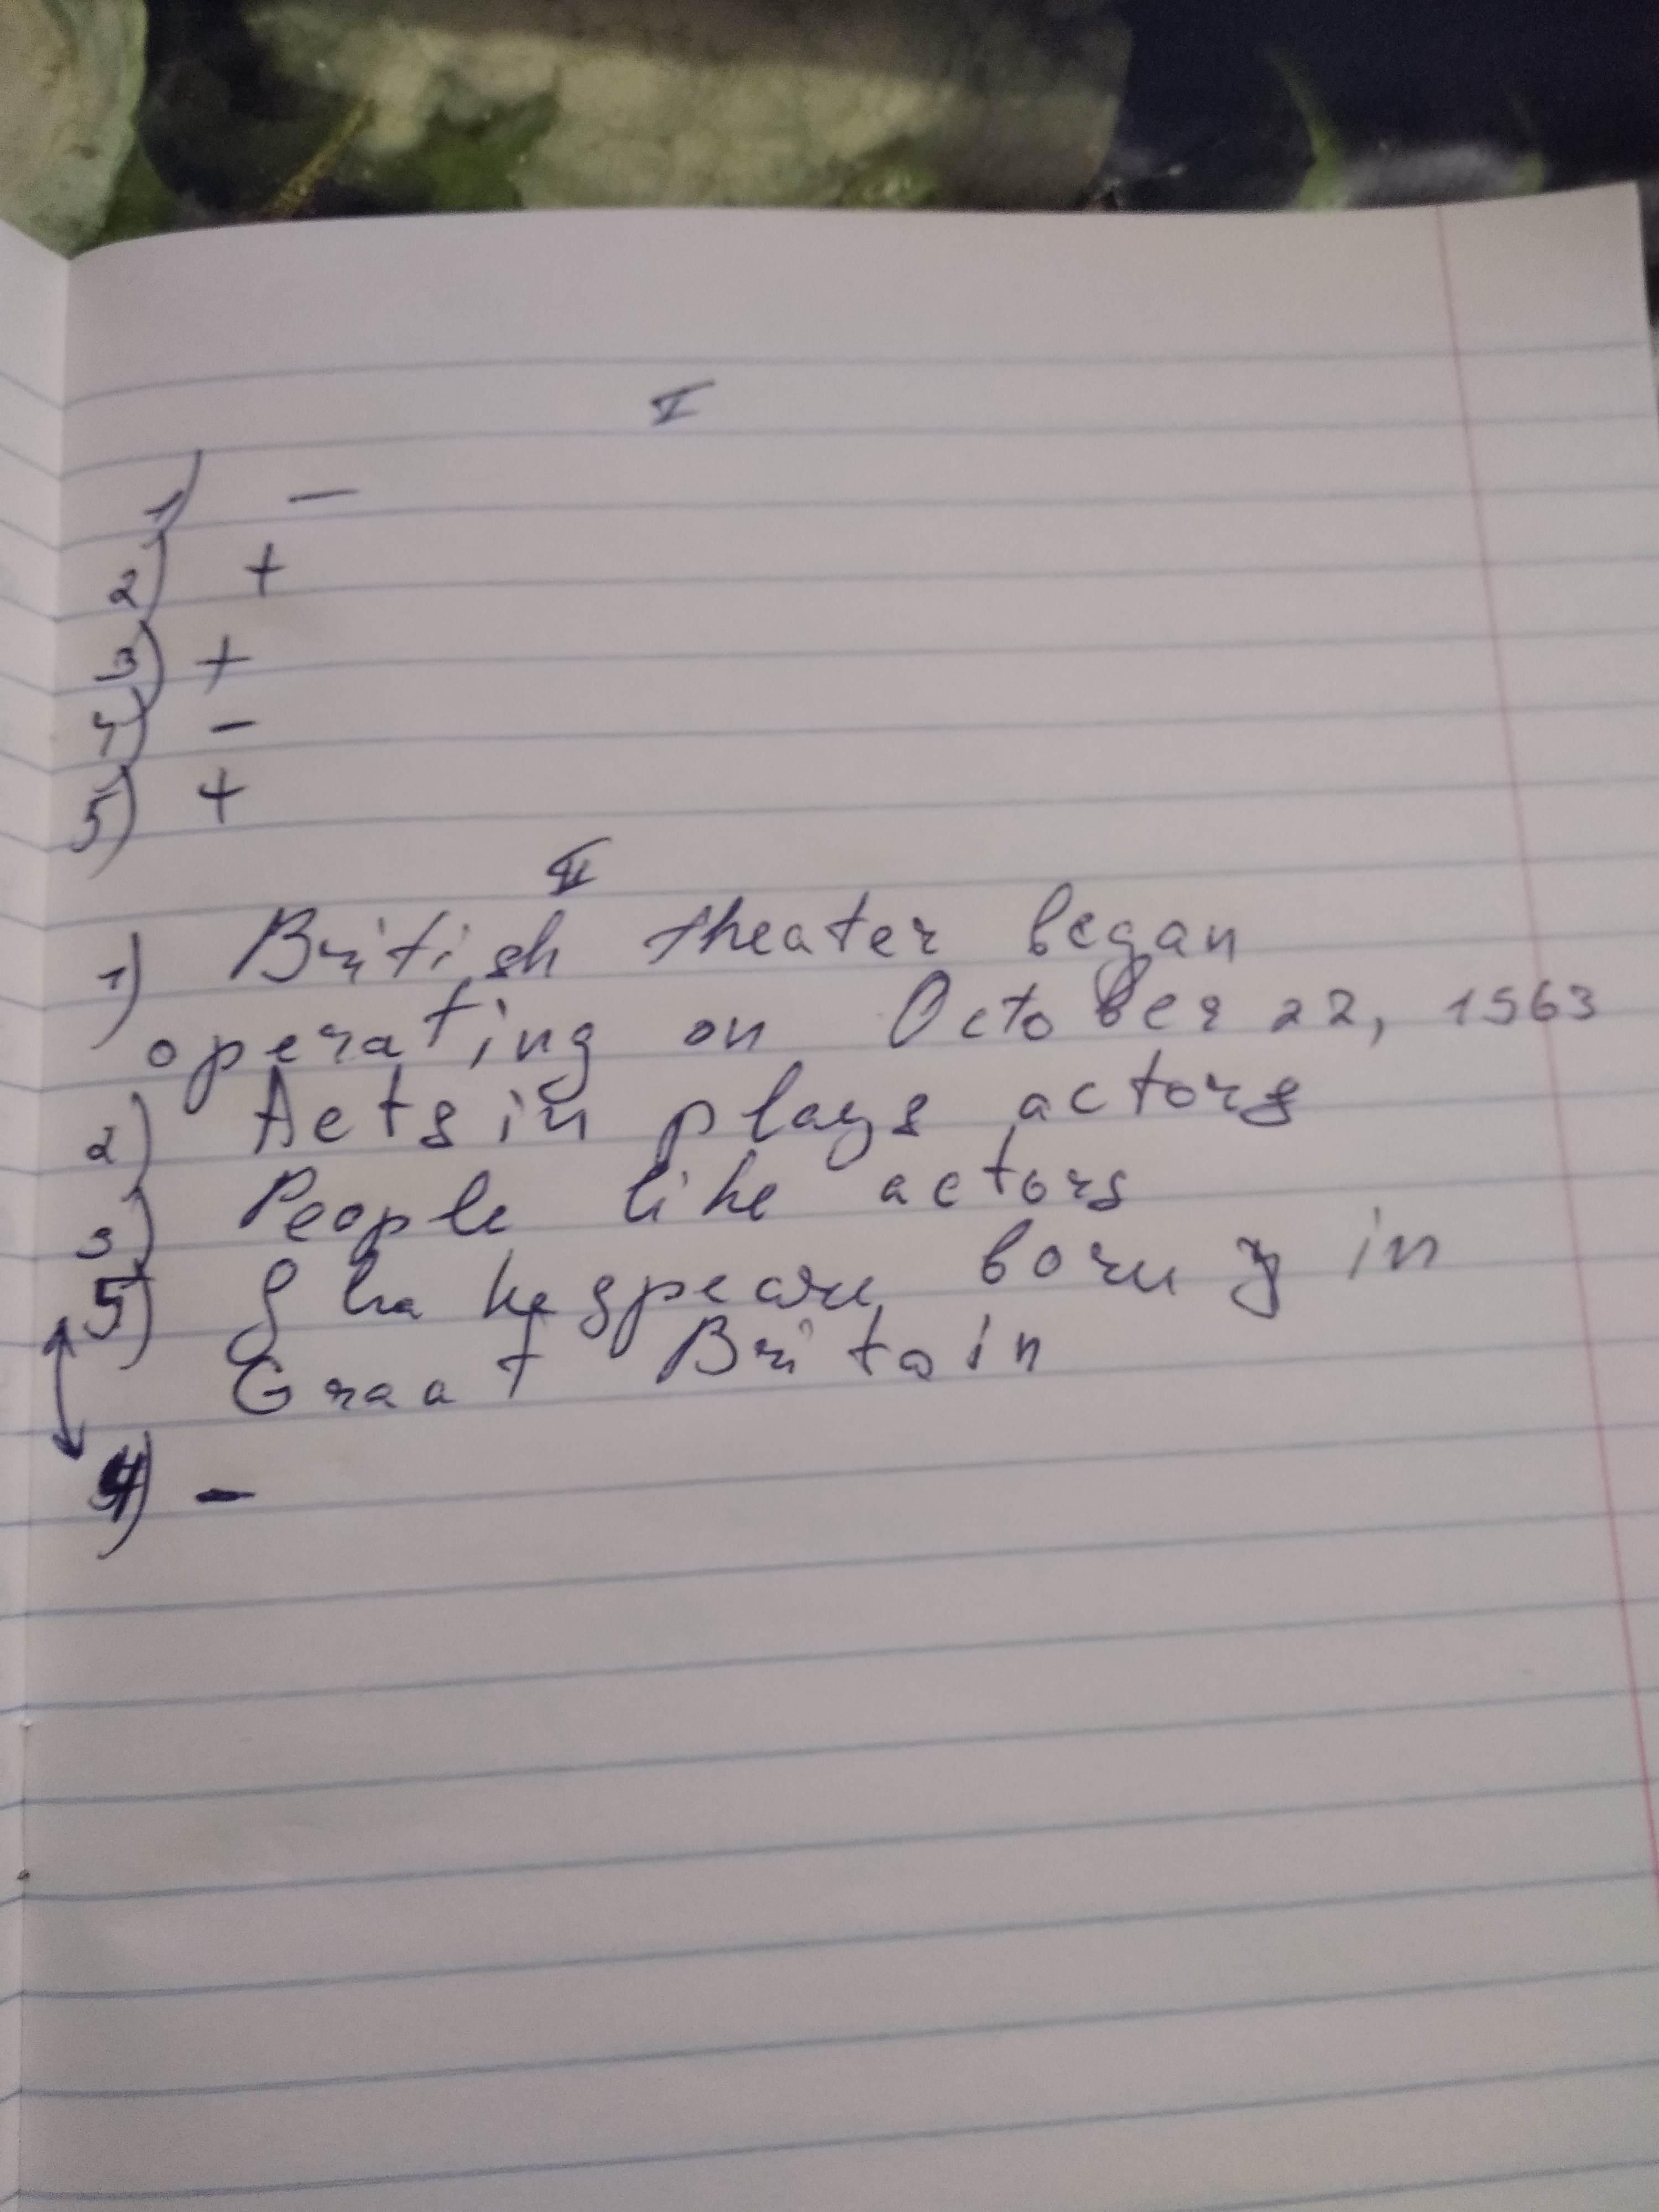 I
1) —
2) +
3) +
4) -
5) +
II
1) British theater began
operating on October 22, 1563
2) Acts in plays actors
3) People like actors
5) Shakespeare born in
Graat Britain
4) -